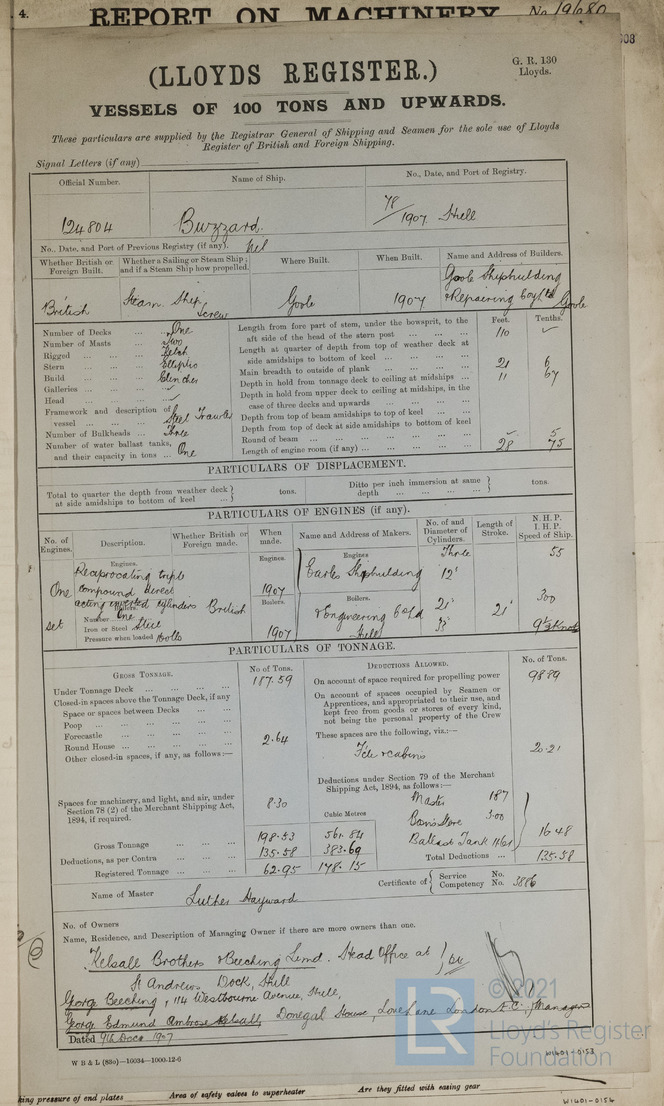 4.
REPORT ON MACHINERY No 19680
(LLOYDS REGISTER.)
G. R. 130
Lloyds.
VESSELS OF 100 TONS AND UPWARDS.
These particulars are supplied by the Registrar General of Shipping and Seamen for the sole use of Lloyds
Register of British and Foreign Shipping.
Signal Letters (if any)
Official Number. Name of Ship. No., Date, and Port of Registry.
124804 Buzzard. 78/1907 Hull
No., Date, and Port of Previous Registry (if any). Nil
Whether British or Foreign Built. Whether a Sailing or Steam Ship; and if a Steam Ship how propelled. Where Built. When Built. Name and Address of Builders.
British Steam Ship Screw Goole 1907 Goole Shipbuilding & Repairing Coy Ltd Goole
Feet. Tenths.
Number of Decks ... One
Number of Masts ... Two
Rigged ... Ketch
Stern ... Elliptic
Build ... Clencher
Galleries ...
Head ...
Framework and description of vessel ... Steel Trawler
Number of Bulkheads ... Three
Number of water ballast tanks, and their capacity in tons ... One
Length from fore part of stem, under the bowsprit, to the
aft side of the head of the stern post ... 110
Length at quarter of depth from top of weather deck at
side amidships to bottom of keel ...
Main breadth to outside of plank ... 21 6
Depth in hold from tonnage deck to ceiling at midships ... 11 67
Depth in hold from upper deck to ceiling at midships, in the
case of three decks and upwards
Depth from top of beam amidships to top of keel ...
Depth from top of deck at side amidships to bottom of keel
Round of beam ... 5
Length of engine room (if any) ... 28 75
PARTICULARS OF DISPLACEMENT.
Total to quarter the depth from weather deck at side amidships to bottom of keel ... tons. Ditto per inch immersion at same depth ... tons.
PARTICULARS OF ENGINES (if any).
No. of Engines. Description. Whether British or Foreign made. When made. Name and Address of Makers. No. of and Diameter of Cylinders. Length of Stroke. N. H. P. I. H. P. Speed of Ship.
Engines. Engines. Engines Three 55
Reciprocating triple Earles Shipbuilding 12"
One compound direct 1907
acting inverted cylinders British Boilers. Boilers. & Engineering Co Ld 21" 21" 300
set Number One
Iron or Steel Steel 1907 Hull
Pressure when loaded
PARTICULARS OF TONNAGE.
GROSS TONNAGE. No of Tons. DEDUCTIONS ALLOWED. No. of Tons.
Under Tonnage Deck ... 187.59
Closed-in spaces above the Tonnage Deck, if any
Space or spaces between Decks ...
Poop ...
Forecastle ...
Round House ... 2.64
Other closed-in spaces, if any, as follows:—
Spaces for machinery, and light, and air, under
Section 78 (2) of the Merchant Shipping Act,
1894, if required. 8.30
Cubic Metres
Gross Tonnage ... 198.53 561.84
Deductions, as per Contra ... 135.58 383.69
Registered Tonnage ... 62.95 178.15
On account of space required for propelling power 98.89
On account of spaces occupied by Seamen or
Apprentices, and appropriated to their use, and
kept free from goods or stores of every kind,
not being the personal property of the Crew
These spaces are the following, viz.:—
F'cle & cabins 20.21
Deductions under Section 79 of the Merchant
Shipping Act, 1894, as follows:—
Master 1.87
Bosn's Store 3.00
Ballast Tank 11.61 16.48
Total Deductions ... 135.58
Name of Master Luther Hayward Certificate of Service No. Competency No. 3886
No. of Owners
Name, Residence, and Description of Managing Owner if there are more owners than one.
Kelsall Brothers & Beeching Limd. Head Office at
St Andrews Dock, Hull
George Beeching, 114 Westbourne Avenue, Hull,
George Edmund Ambrose Kelsall, Donegal House, Love Lane London E.C., Managers
Dated 9th Decr 1907
W B & L (83o)—16034—1000-12-6
© 2021
LR
Lloyd's Register
Foundation
W1401-0153
king pressure of end plates Area of safety valves to superheater Are they fitted with easing gear
W1401-0154